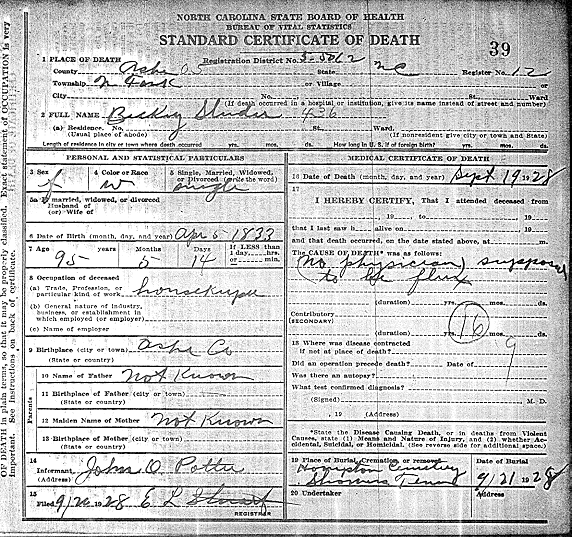 NORTH CAROLINA STATE BOARD OF HEALTH
BUREAU OF VITAL STATISTICS
STANDARD CERTIFICATE OF DEATH
39
1 PLACE OF DEATH
Registration District No. 5-5012
County Ashe 05 State NC Register No. 12
Township N Fork or Village or
City No. St. Ward
(If death occurred in a hospital or institution, give its name instead of street and number)
2 FULL NAME Becky 436
(a) Residence. No. St. Ward.
(Usual place of abode) (If nonresident give city or town and State)
Length of residence in city or town where death occurred yrs. mos. ds. How long in U. S. if of foreign birth? yrs. mos. ds.
PERSONAL AND STATISTICAL PARTICULARS
3 Sex 4 Color or Race 5 Single, Married, Widowed, or Divorced (write the word)
f w single
5a If married, widowed, or divorced
Husband of
(or) Wife of
6 Date of Birth (month, day, and year) Apr 5 1833
7 Age years Months Days If LESS than 1 day, hrs. or min.
95 5 14
8 Occupation of deceased
(a) Trade, Profession, or particular kind of work housekeeper
(b) General nature of industry, business, or establishment in which employed (or employer)
(c) Name of employer
9 Birthplace (city or town) Ashe Co
(State or country)
Parents
10 Name of Father Not Known
11 Birthplace of Father (city or town)
(State or country)
12 Maiden Name of Mother Not Known
13 Birthplace of Mother (city or town)
(State or country)
14
Informant John O Potter
(Address)
15
Filed 9/26 1928 E L
REGISTRAR
MEDICAL CERTIFICATE OF DEATH
16 Date of Death (month, day, and year) Sept 19 1928
17
I HEREBY CERTIFY, That I attended deceased from
19 to 19
that I last saw h alive on 19
and that death occurred, on the date stated above, at m.
The CAUSE OF DEATH* was as follows:
(No physician) suppose
to be flux
(duration) yrs. mos. ds.
Contributory
(SECONDARY)
16
(duration) yrs. mos. ds.
18 Where was disease contracted
if not at place of death? 9
Did an operation precede death? Date of
Was there an autopsy?
What test confirmed diagnosis?
(Signed) M. D.
, 19 (Address)
*State the Disease Causing Death, or in deaths from Violent Causes, state (1) Means and Nature of Injury, and (2) whether Accidental, Suicidal, or Homicidal. (See reverse side for additional space.)
19 Place of Burial, Cremation, or removal Date of Burial
Hampton Cemetery
Tenn 9/21 1928
20 Undertaker Address
OF DEATH in plain terms, so that it may be properly classified. Exact statement of OCCUPATION is very
important. See instructions on back of certificate.